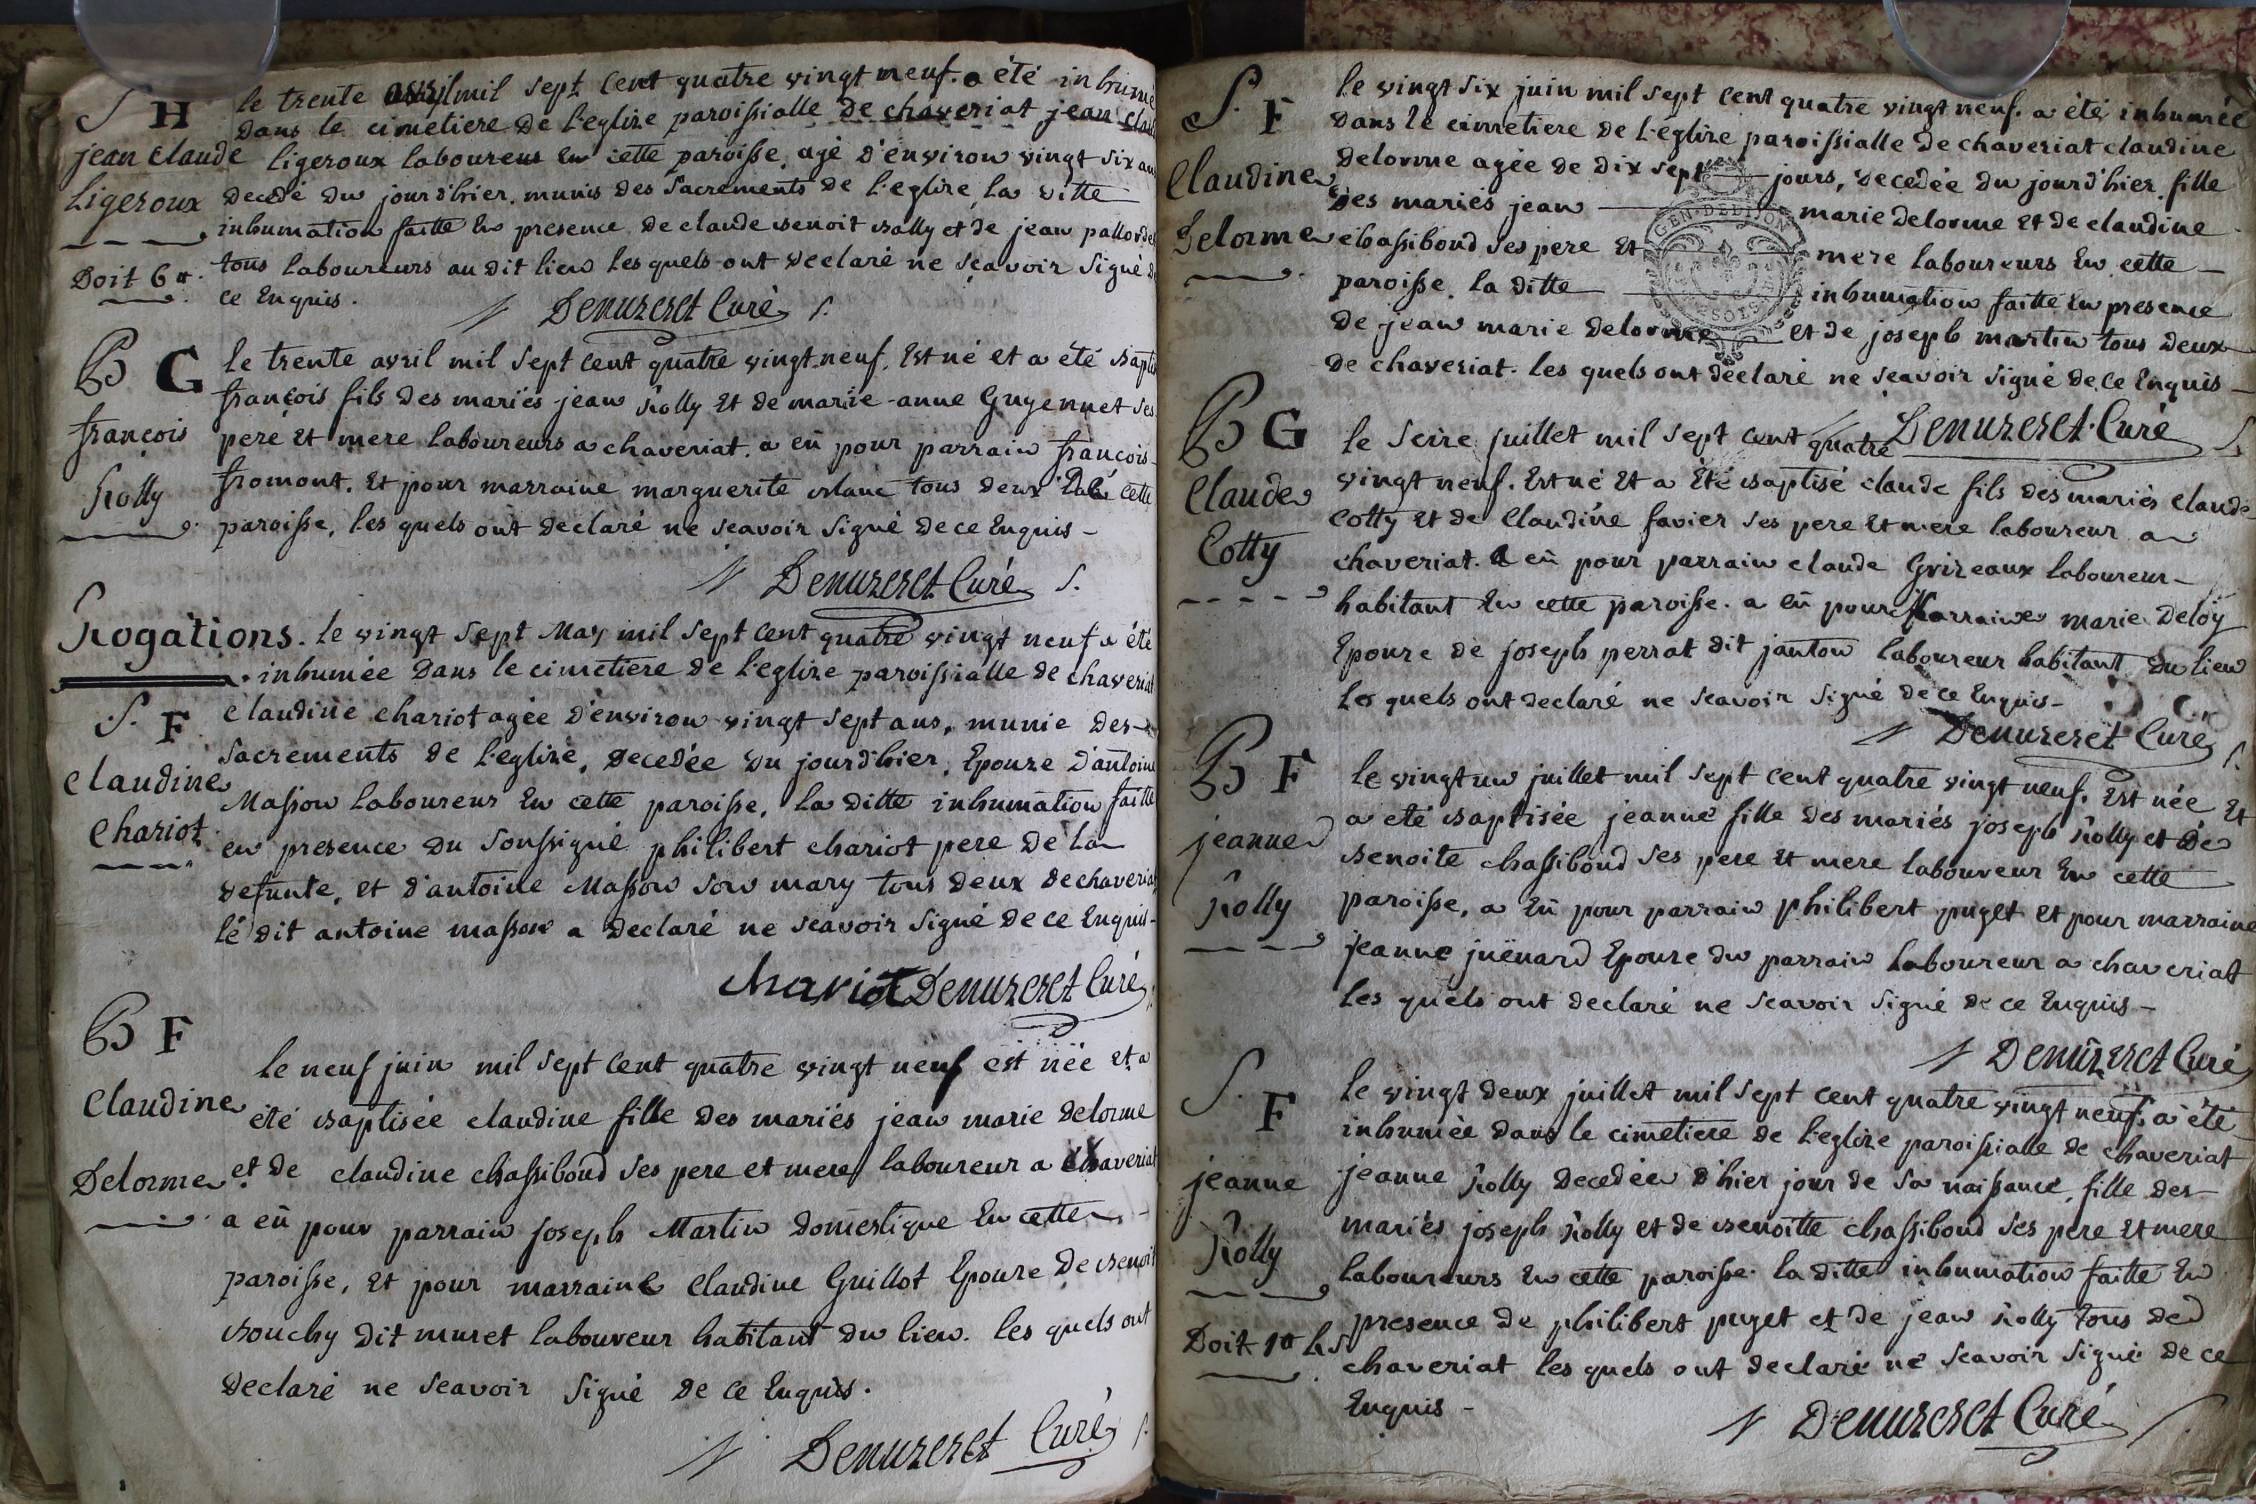 S H
jean Claude
ligeroux
Doit 6 ₶.
le trente avril mil sept cent quatre vingt neuf. a été inhumé
dans le cimetiere de l'eglize paroissialle de chaveriat jean claude
ligeroux laboureur En cette paroisse, agé d'environ vingt six ans
decedé du jour d'hier. munis des Sacrements de l'eglize, la ditte
inhumation faitte En presence de claude benoit bally et de jean
tous laboureurs au dit lieu les quels ont declaré ne sçavoir signé de
ce Enquis.
Denuzeret Curé
B G
françois
Rolly
le trente avril mil sept cent quatre vingt neuf. Est né et a été baptisé
françois fils des mariés jean Rolly Et de marie-anne Guyennet ses
pere Et mere laboureurs a chaveriat. a eü pour parrain françois
fromont. Et pour marraine marguerite blanc tous deux de cette
paroisse, les quels ont declaré ne sçavoir signé de ce Enquis –
Denuzeret Curé
Rogations. le vingt sept May mil sept cent quatre vingt neuf a été
inhumée dans le cimetiere de l'eglize paroissialle de chaveriat
S. F
claudine
Chariot
claudine chariot agée d'environ vingt sept ans, munie des
Sacrements de l'eglize, decedée du jour d'hier, Epouze d'antoine
Masson laboureur En cette paroisse, la ditte inhumation faitte
en presence du soussigné philibert chariot pere de la
defunte, et d'antoine Masson son mary tous deux de chaveriat
lé dit antoine masson a declaré ne sçavoir signé de ce Enquis –
Chariot Denuzeret Curé
B F
Claudine
Delorme
le neuf juin mil sept cent quatre vingt neuf est née et a
été baptisée claudine fille des mariés jean marie delorme
et de claudine chassiboud ses pere et mere laboureur a chaveriat
a eü pour parrain joseph Martin domestique En cette
paroisse, et pour marraine Claudine Guillot Epouze De benoit
bouchy dit muret laboureur habitant du lieu. les quels ont
declaré ne sçavoir signé de ce Enquis.
Denuzeret Curé
S. F
Claudine
Delorme
le vingt six juin mil sept cent quatre vingt neuf. a été inhumée
dans le cimetiere de l'église paroissialle de chaveriat claudine
delorme agée de dix sept jours, decedée du jour d'hier fille
des mariés jean marie delorme Et de claudine
chassiboud ses pere Et mere laboureurs En cette
paroisse. la ditte inhumation faitte En presence
de jean marie delorme et de joseph martin tous deux
de chaveriat. les quels ont déclaré ne sçavoir signé de ce Enquis –
GEN. DE DIJON
Denuzeret Curé
B G
Claude
Cotty
le seize juillet mil sept cent quatre
vingt neuf. Est né Et a Été baptisé claude fils des mariés claude
Cotty Et de Claudine favier ses pere Et mere laboureur a
chaveriat. a eü pour parrain claude Grizeaux laboureur –
habitant En cette paroisse. a eü pour Marraine marie Deloy
Epouze de joseph perrat dit janton laboureur habitant du lieu
les quels ont declaré ne sçavoir signé de ce Enquis –
Denuzeret Curé
B F
jeanne
Rolly
le vingt un juillet mil sept cent quatre vingt neuf. Est née Et
a été baptisée jeanne fille des mariés joseph Rolly et de
benoite chassiboud ses pere Et mere laboureur En cette
paroisse, a Eü pour parrain philibert puget et pour marraine
jeanne juënard Epouze du parrain laboureur a chaveriat
les quels ont declaré ne sçavoir signé de ce Enquis –
Denuzeret Curé
S. F
jeanne
Rolly
Doit 1 ₶ 4 s
le vingt deux juillet mil sept cent quatre vingt neuf. a été
inhumée dans le cimetiere de l'eglize paroissialle de chaveriat
jeanne Rolly decedée d'hier jour de sa naissance, fille des
mariés joseph Rolly et de benoitte chassiboud ses pere Et mere
laboureurs En cette paroisse. la ditte inhumation faitte En
presence de philibert puget et de jean Rolly tous de
chaveriat les quels ont declaré ne sçavoir signé de ce
Enquis –
Denuzeret Curé